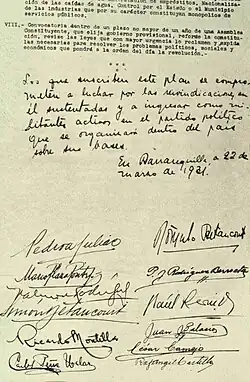 ción de las caídas de agua. Control por el Estado o el Municipio
de las industrias que por su carácter constituyan monopolios de
servicios públicos.
VIII.- Convocatoria dentro de un plazo no mayor de un año de una Asamblea
Constituyente, que elija gobierno provisional, reforme la constitu-
ción, revise las leyes que con mayor urgencia lo reclamen y expida
las necesarias para resolver los problemas políticos, sociales y
económicos que pondrá a la orden del día la revolución.
Los que suscriben este plan se compro-
meten a luchar por las reivindicaciones en
él sustentadas y a ingresar como mi-
litantes activos en el partido político
que se organizará dentro del país
sobre sus bases.
En Barranquilla a 22 de
marzo de 1931.
Pedro A Juliao
Rómulo Betancourt
Mario Plaza Ponte
P J Rodríguez Berroeta
Valmore Rodríguez
Raúl Leoni
Simón Betancourt
Juan J Palacios
Ricardo Montilla
César Camejo
Carlos Peña Uslar
Rafael Angel Castillo